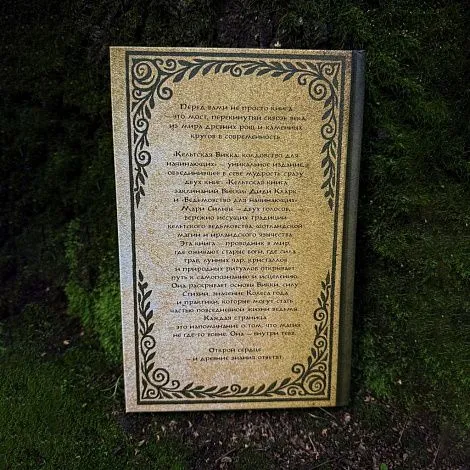 Перед вами не просто книга
— это мост, перекинутый сквозь века,
из мира древних рощ и каменных
кругов в современность.
«Кельтская Викка: колдовство для
начинающих» — уникальное издание,
объединившее в себе мудрость сразу
двух книг: «Кельтская книга
заклинаний Викки» Диди Кларк
и «Ведьмовство для начинающих»
Мари Сильвы — двух голосов,
бережно несущих традиции
кельтского ведьмовства, шотландской
магии и ирландского язычества.
Эта книга — проводник в мир,
где оживают старые боги, где сила
трав, лунных чар, кристаллов
и природных ритуалов открывает
путь к самопознанию и исцелению.
Она раскрывает основы Викки, силу
Стихий, значение Колеса года
и практики, которые могут стать
частью повседневной жизни ведьмы.
Каждая страница —
это напоминание о том, что магия
не где-то вовне. Она — внутри тебя.
Открой сердце
— и древние знания ответят.